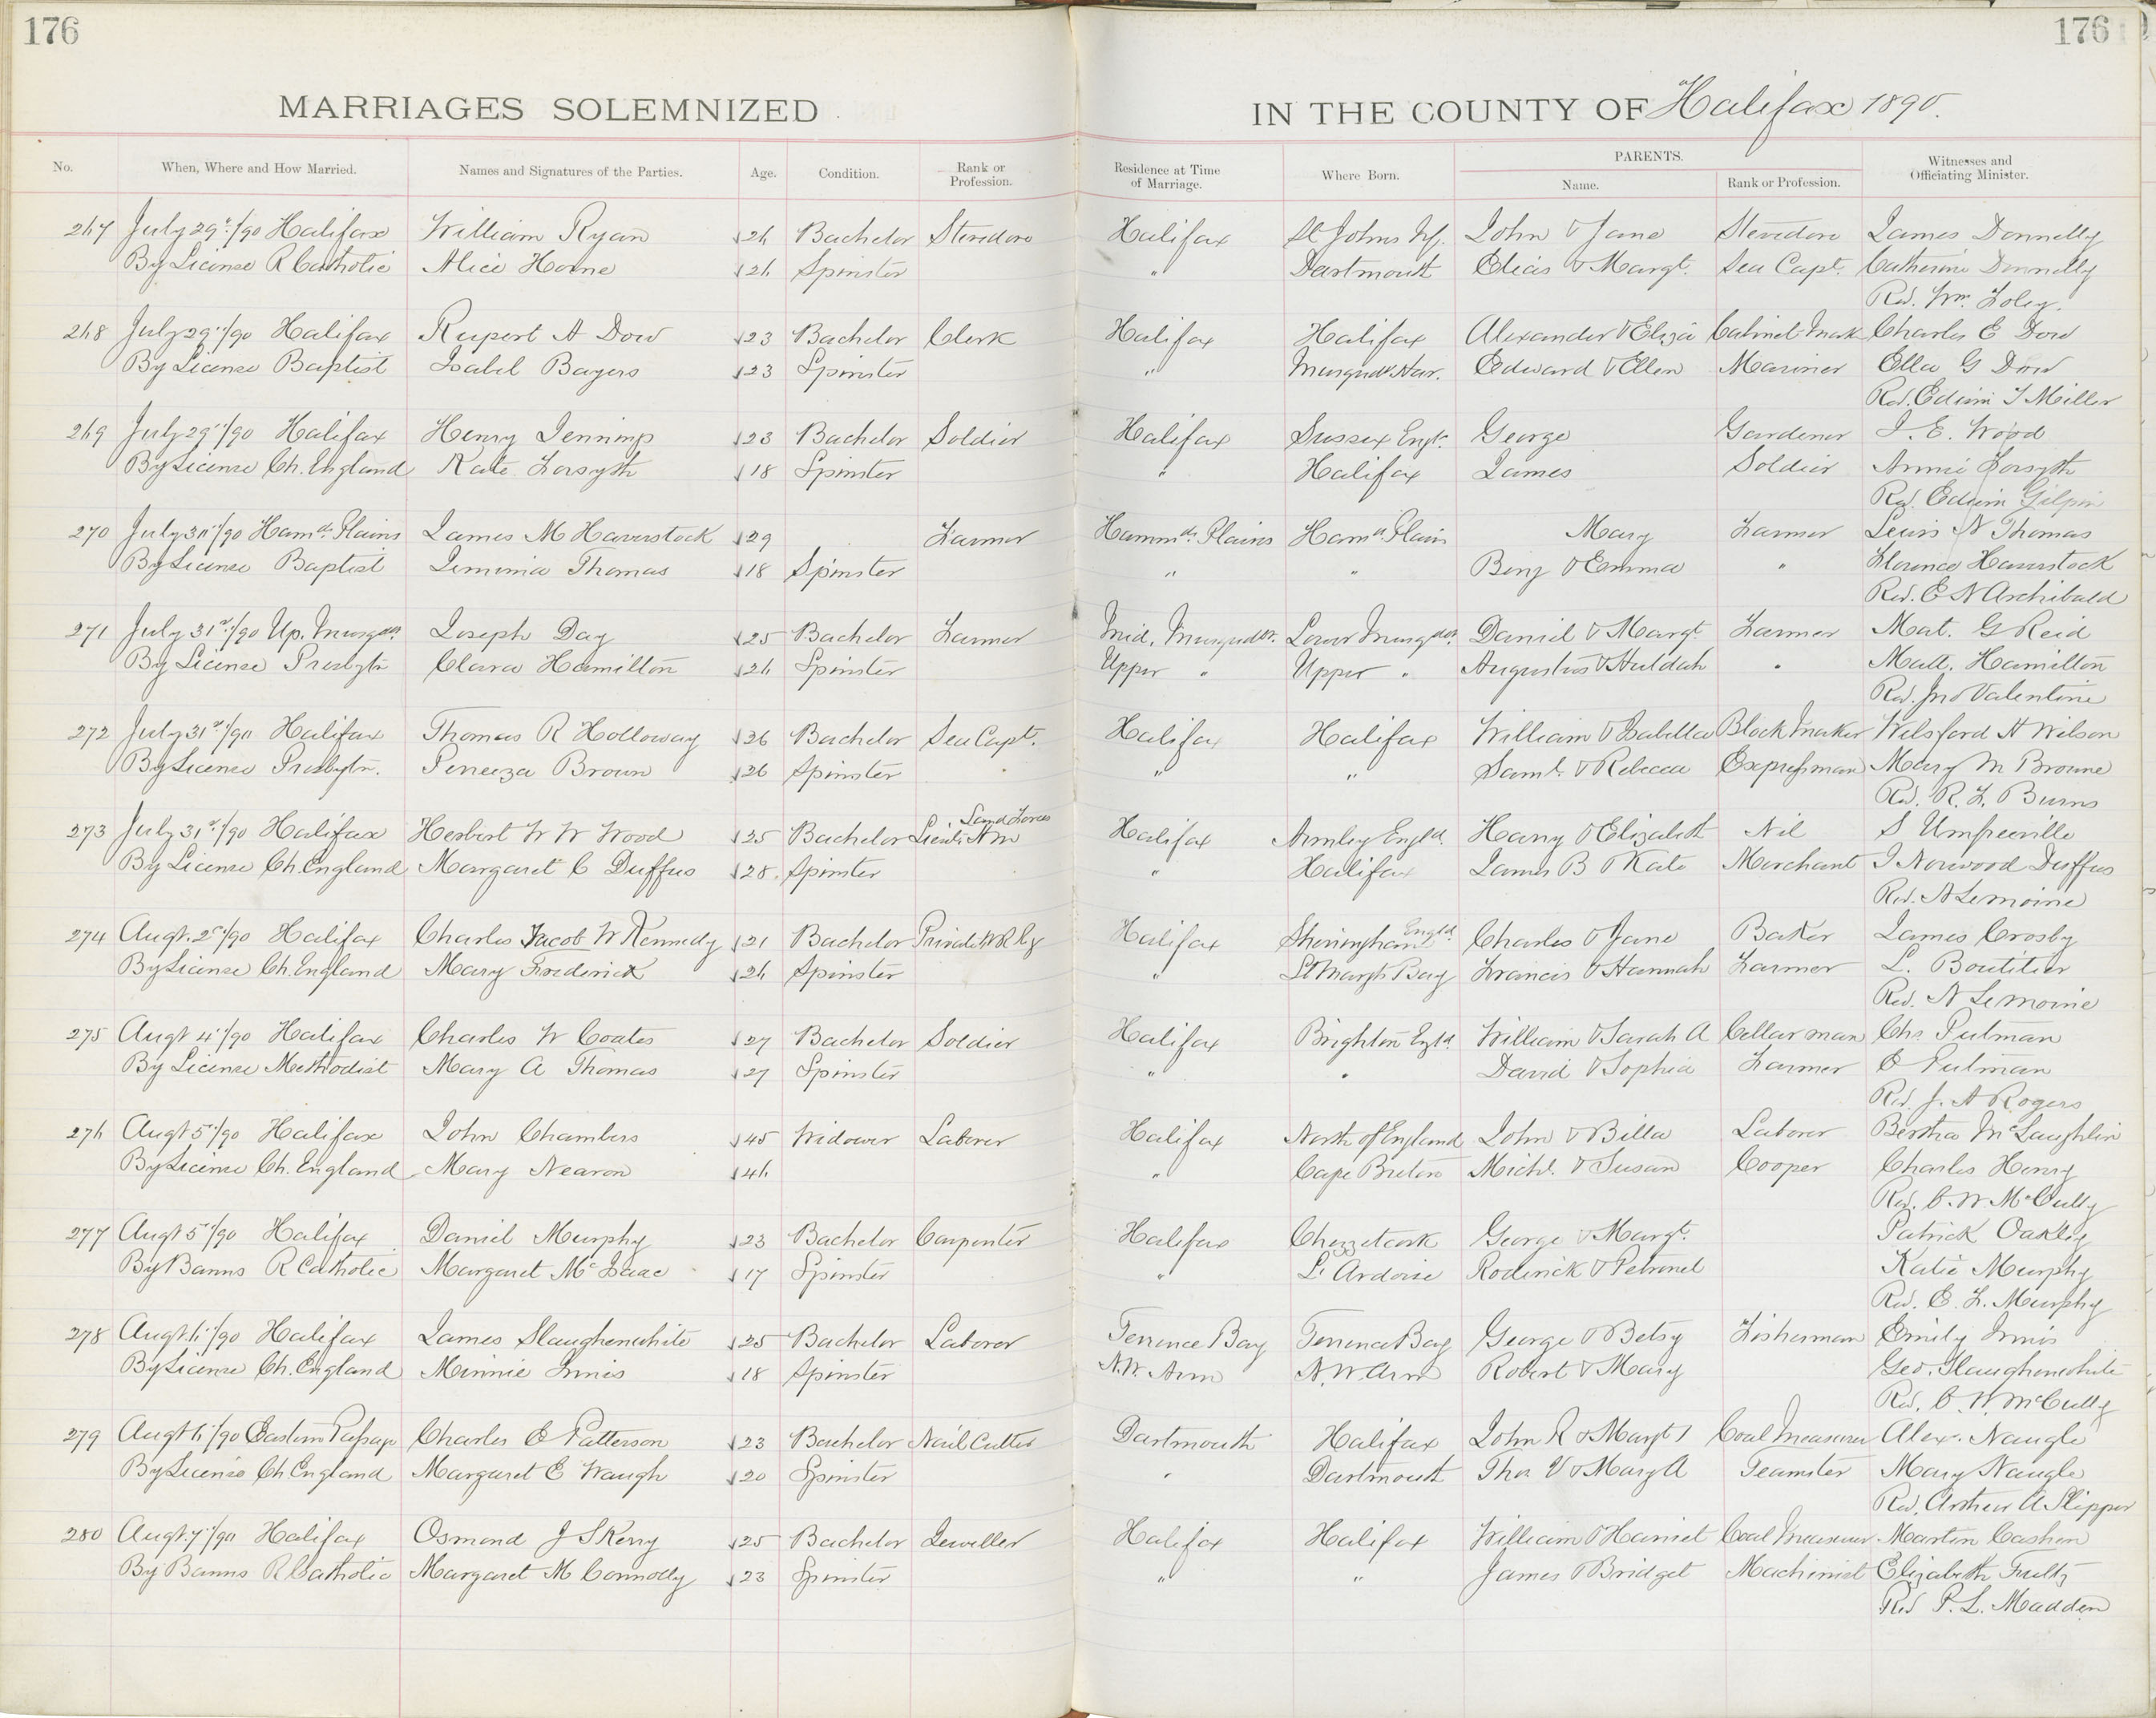 176
176
MARRIAGES SOLEMNIZED
IN THE COUNTY OF Halifax 1890.
No. When, Where and How Married. Names and Signatures of the Parties. Age. Condition. Rank or Profession. Residence at Time of Marriage. Where Born. PARENTS. Name. Rank or Profession. Witnesses and Officiating Minister.
267 July 29th/90 Halifax William Ryan 26 Bachelor Stevidore Halifax St Johns Nf. John & Jane Stevedore James Donnelly
By License R Catholic Alice Horne 26 Spinster " Dartmouth Elias & Margt. Sea Capt. Catherine Donnelly
Rev. Wm. Foley
268 July 29th/90 Halifax Rupert A Dow 23 Bachelor Clerk Halifax Halifax Alexander & Eliza Cabinet Mak Charles E Dow
By License Baptist Isabel Bayers 23 Spinster " Musqudt. Har. Edward & Ellen Mariner Ella G Dow
Rev. Edwin T Miller
269 July 29th/90 Halifax Henry Jennings 23 Bachelor Soldier Halifax Sussex Engd. George Gardener J. E. Wood
By License Ch. England Kate Forsyth 18 Spinster " Halifax James Soldier Annie Forsyth
Rev. Edwin Gilpin
270 July 30/90 Hamds. Plains James M Haverstock 29 Farmer Hammds. Plains Hamds Plains Mary Farmer Lewis N Thomas
By License Baptist Jemima Thomas 18 Spinster " " Benj & Emma " Florence Haverstock
Rev. E N Archibald
271 July 31st/90 Up. Musqdt. Joseph Day 25 Bachelor Farmer Mid. Musqudt. Lower Musqdt. Daniel & Margt. Farmer Mat. G Reid
By License Presbytn Clara Hamilton 26 Spinster Upper " Upper " Augustus & Huldah " Matt. Hamilton
Rev. Jno Valentine
272 July 31st/90 Halifax Thomas R Holloway 26 Bachelor Sea Capt. Halifax Halifax William & Isabella Block Maker Wilsford H Wilson
By License Presbytn. Peneeza Brown 26 Spinster " " Saml. & Rebecca Expressman Mary M Browne
Rev. R. F. Burns
273 July 31st/90 Halifax Herbert W W Wood 25 Bachelor Lieut. Am Land Forces Halifax Armley Engld. Harry & Elizabeth Nil S Umfreville
By License Ch. England Margaret C Duffus 28 Spinster " Halifax James B & Kate Merchant J Norwood Duffus
Rev. A Lemoine
274 Augt. 2nd/90 Halifax Charles Jacob W Kennedy 21 Bachelor Private W R Rg Halifax Sheringham Engld. Charles & Jane Baker James Crosby
By License Ch. England Mary Frederick 26 Spinster " St Margts Bay Francis & Hannah Farmer L. Boutilier
Rev. A Lemoine
275 Augt 4th/90 Halifax Charles W Coates 27 Bachelor Soldier Halifax Brighton Engld. William & Sarah A Cellar man Chs. Pulman
By License Methodist Mary A Thomas 27 Spinster " " David & Sophia Farmer E Pulman
Rev. J. A Rogers
276 Augt 5th/90 Halifax John Chambers 45 Widower Laborer Halifax North of England John & Billa Laborer Bertha McLaughlin
By License Ch. England Mary Nearon 46 " Cape Breton Michl. & Susan Cooper Charles Henry
Rev. C. W. McCully
277 Augt 5th/90 Halifax Daniel Murphy 23 Bachelor Carpenter Halifax Chezzetcook George & Margt. Patrick Oakley
By Banns R Catholic Margaret McIsaac 17 Spinster " L'Ardoise Roderick & Petronel Katie Murphy
Rev. E. F. Murphy
278 Augt. 6th/90 Halifax James Slaughenwhite 25 Bachelor Laborer Terrence Bay Terrence Bay George & Betsy Fisherman Emily Innis
By License Ch. England Minnie Innis 18 Spinster N.W. Arm N.W. Arm Robert & Mary Geo. Slaughenwhite
Rev. C. W McCully
279 Augt 6th/90 Eastern Passage Charles E Patterson 23 Bachelor Nail Cutter Dartmouth Halifax John R & Margt I Coal Measurer Alex. Naugle
By License Ch England Margaret E Waugh 20 Spinster " Dartmouth Thos V & Mary A Teamster Mary Naugle
Rev. Arthur A Slipper
280 Augt. 7th/90 Halifax Osmond J Skerry 25 Bachelor Jeweller Halifax Halifax William & Harriet Coal Measurer Martin Cashen
By Banns R Catholic Margaret M Connolly 23 Spinster " " James & Bridget Machinist Elizabeth Fultz
Rev P. L. Madden